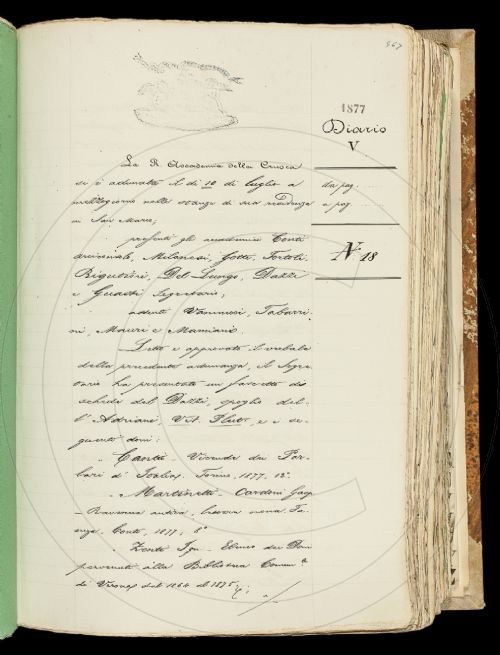 367
1877
Diario
V
da pag.
a pag.
N. 18
La R. Accademia della Crusca
si è adunata il dì 10 di luglio a
mezzogiorno nelle stanze di sua residenza
in San Marco;
presenti gli accademici Conti
arciconsolo, Milanesi, Gotti, Tortoli,
Rigutini, Del Lungo, Dazzi
e Guasti Segretario;
assenti Vannucci, Tabarri-
ni, Mauri e Mamiani.
Letto e approvato il verbale
della precedente adunanza, il Segre-
tario ha presentato un fascetto di
schede del Dazzi, spoglio del-
l'Adriani, V.it. Plut., e i se-
guenti doni:
Cantù - Vicende dei Par-
lari d'Italia. Torino, 1877, 12°.
Martinetti - Cardoni Gasp.
- Ravenna antica, lettera nona. Fa-
enza, Conti, 1877, 8°
Zanti Ign. - Elenco dei Doni
pervenuti alla Biblioteca Comun.
di Verona dal 1864 al 1875,